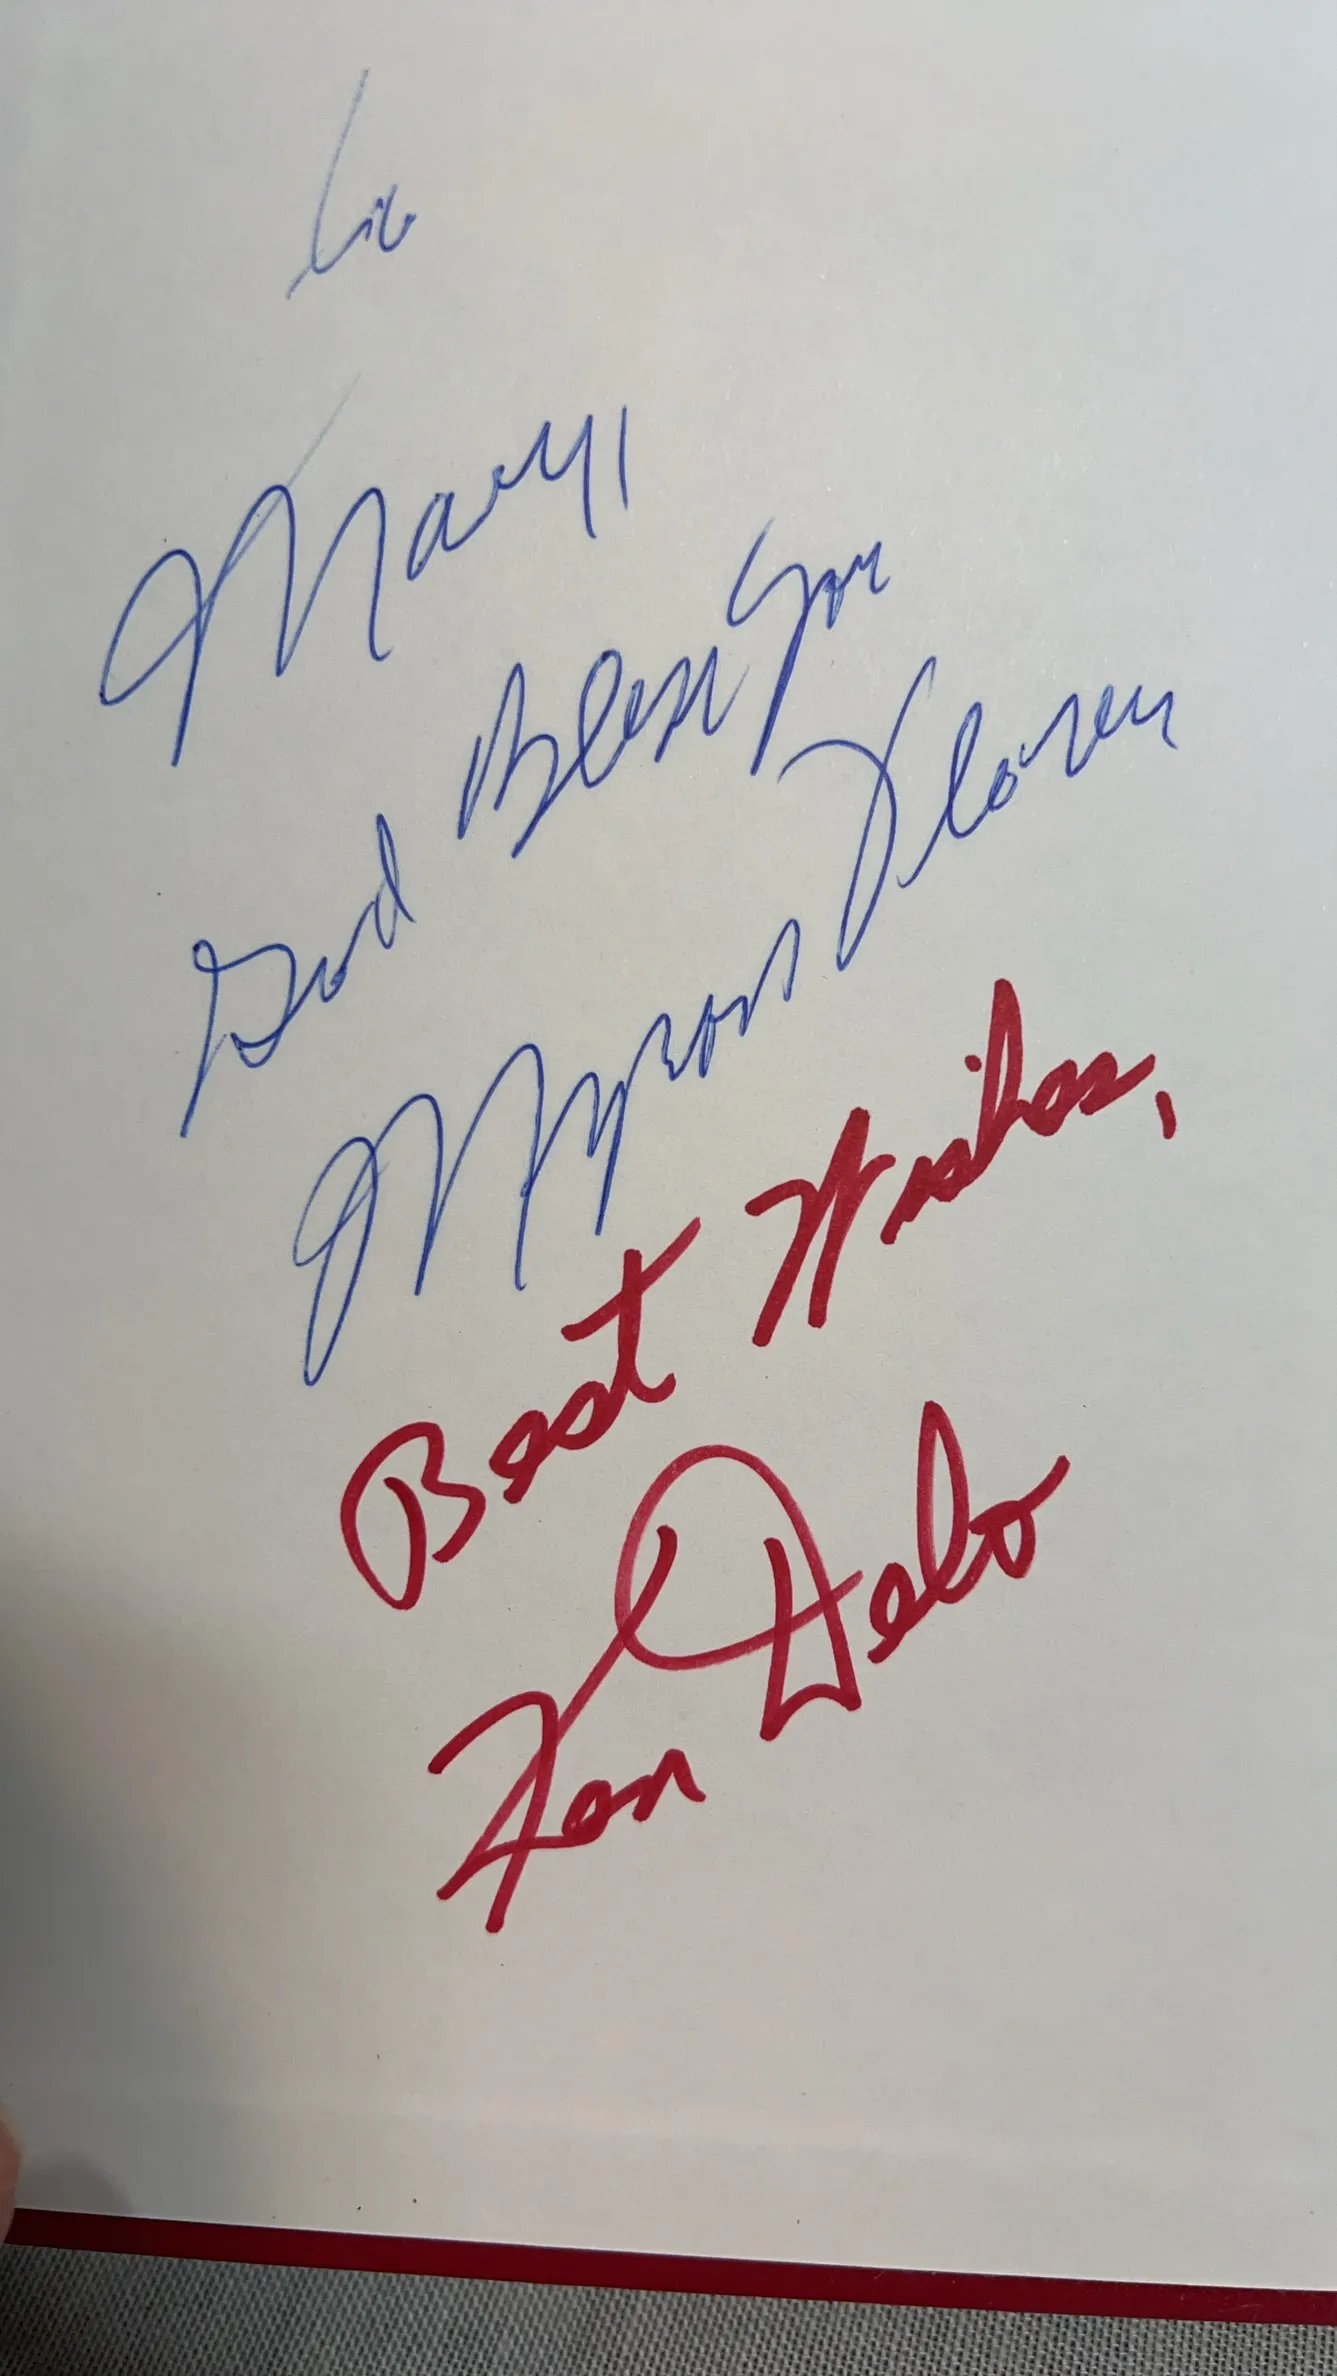 To
Mary!
God Bless you
Myron Floren
Best Wishes,
Ken Delo